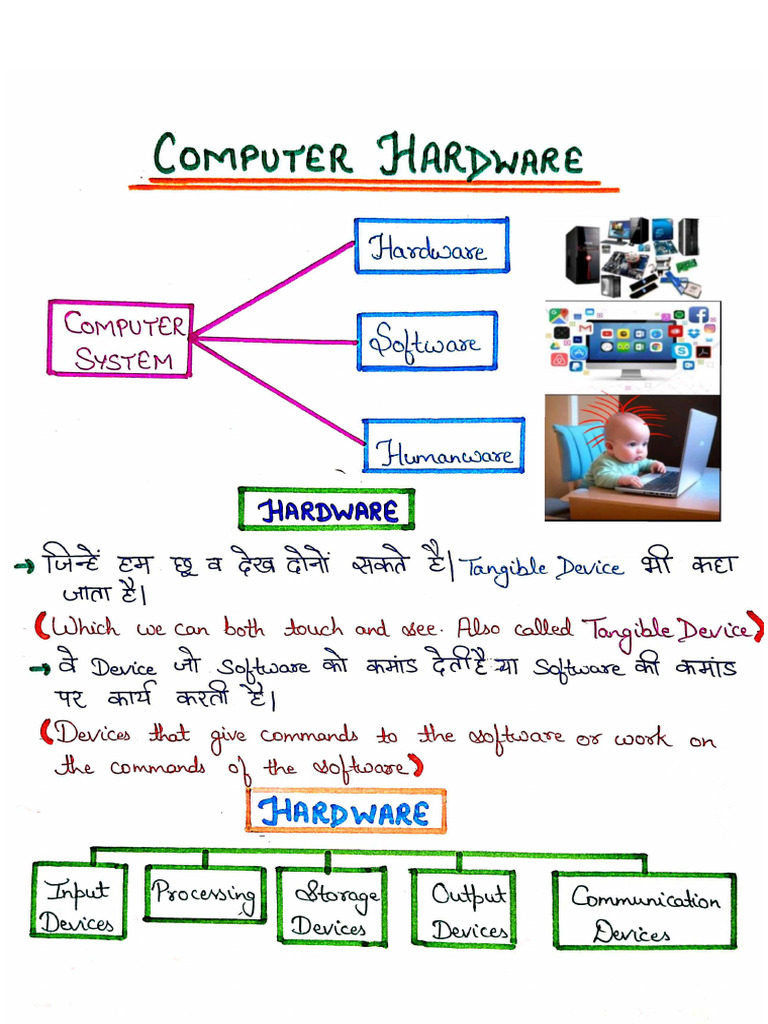 COMPUTER HARDWARE
Hardware
COMPUTER
SYSTEM
Software
Humanware
HARDWARE
→ जिन्हें हम छू व देख दोनों सकते है। Tangible Device भी कहा
जाता है।
(Which we can both touch and see. Also called Tangible Device)
→ वे Device जो Software को कमांड देती है या Software की कमांड
पर कार्य करती है।
(Devices that give commands to the software or work on
the commands of the software)
HARDWARE
Input
Devices
Processing
Storage
Devices
Output
Devices
Communication
Devices